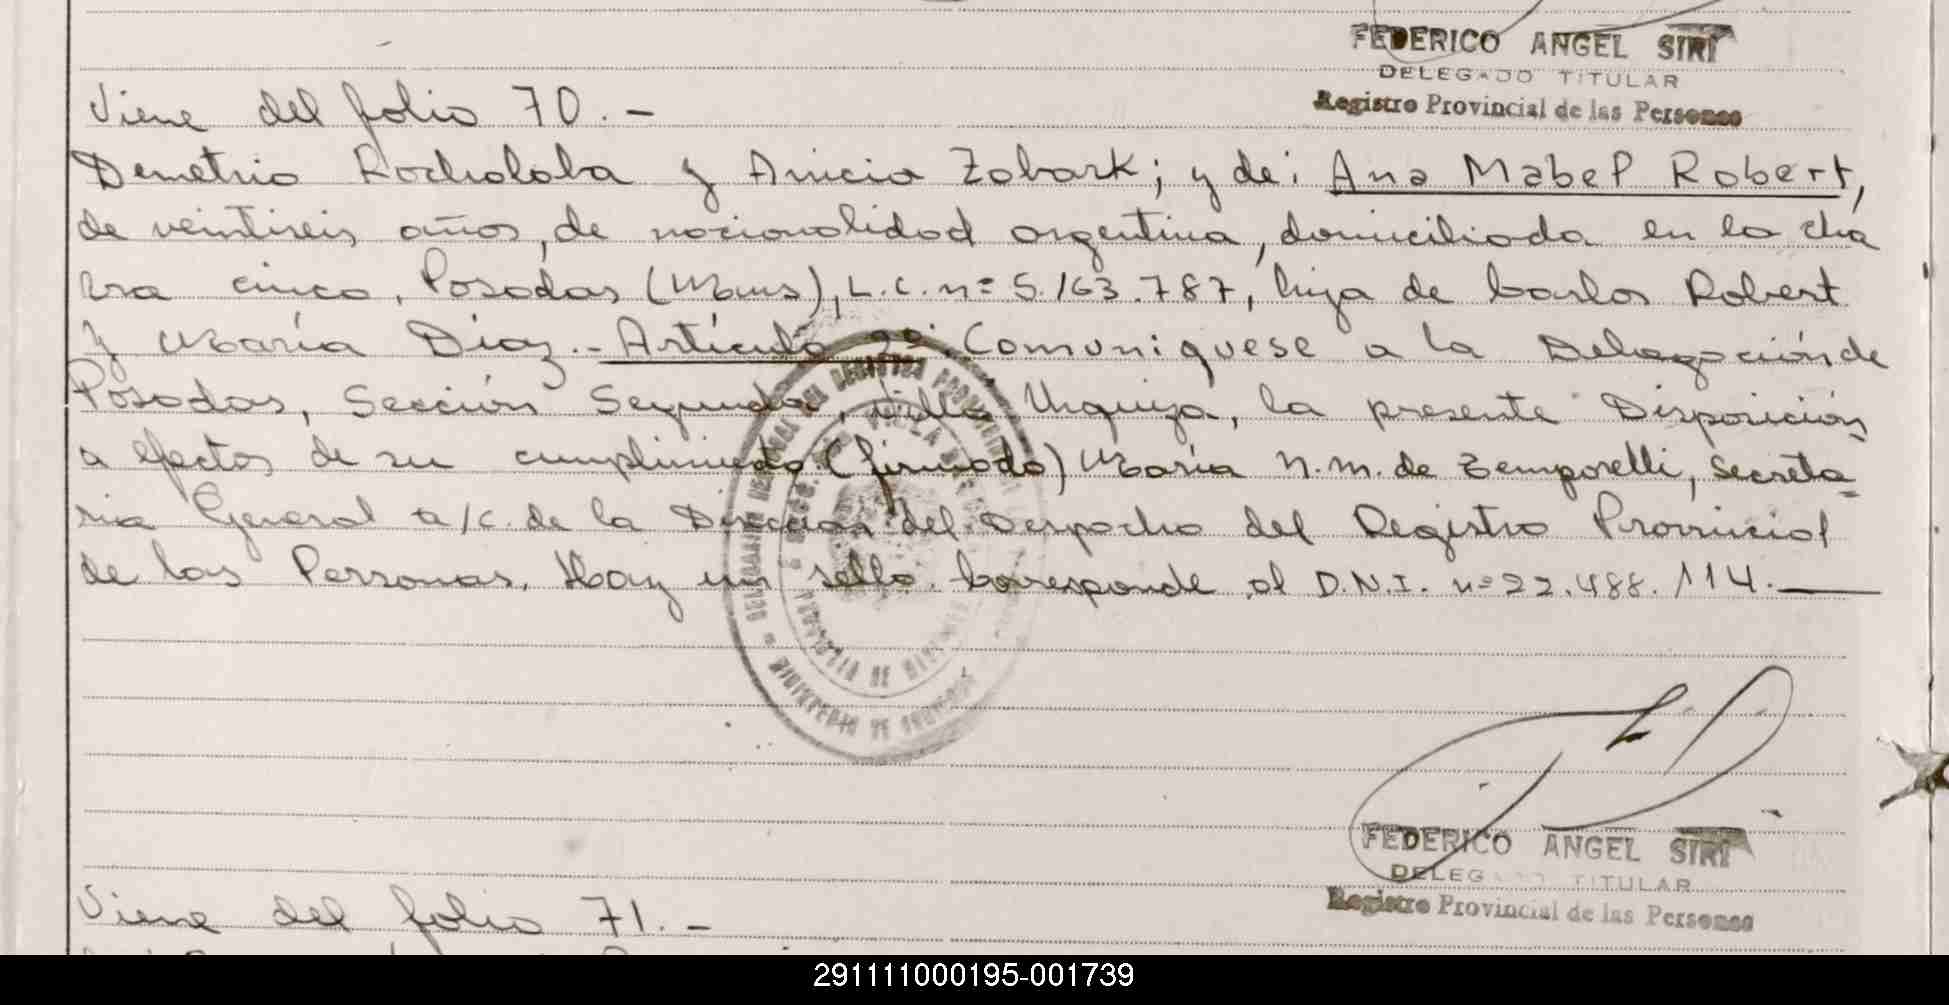 FEDERICO ANGEL SIRI
DELEGADO TITULAR
Registro Provincial de las Personas
Viene del folio 70.-
Demetrio Rocholoba y Anicia Zobark; y de: Ana Mabel Robert,
de veintiseis años, de nacionalidad argentina, domiciliada en la chá
cra cinco, Posadas (Mnes), L.C. nº 5.163.787, hija de Carlos Robert
y María Díaz.- Artículo 2º: Comuniquese a la Delegación de
Posadas, Sección Segunda, Villa Urquiza, la presente Disposición
a efectos de su cumplimiento. (firmado) María N.M. de Temporelli, Secreta-
ria General a/c. de la Dirección del Despacho del Registro Provincial
de las Personas. Hay un sello. Corresponde al D.N.I. nº 22.488.114.
PROVINCIA DE MISIONES
MINISTERIO DE GOBIERNO
FEDERICO ANGEL SIRI
DELEGADO TITULAR
Registro Provincial de las Personas
Viene del folio 71.-
291111000195-001739